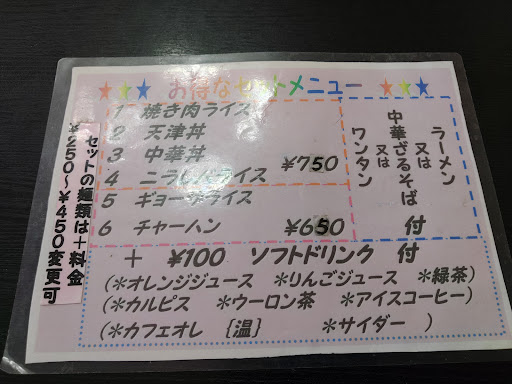 ★★★ お得なセットメニュー ★★★
1 焼き肉ライス
2 天津丼
3 中華丼
4 ニラレバライス
¥750
5 ギョーザライス
6 チャーハン ¥650
ラーメン
又は
中華ざるそば
又は
ワンタン
付
+ ¥100 ソフトドリンク 付
(*オレンジジュース *りんごジュース *緑茶)
(*カルピス *ウーロン茶 *アイスコーヒー)
(*カフェオレ {温} *サイダー )
セットの麺類は+料金
¥250~¥450変更可